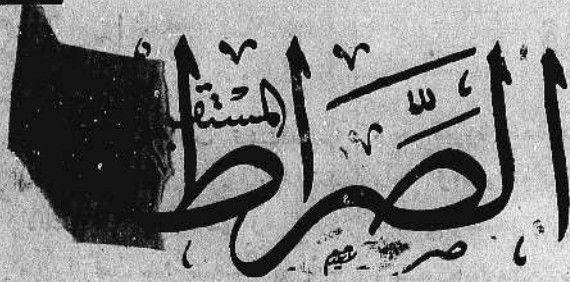 الصّراط
المستقيـ